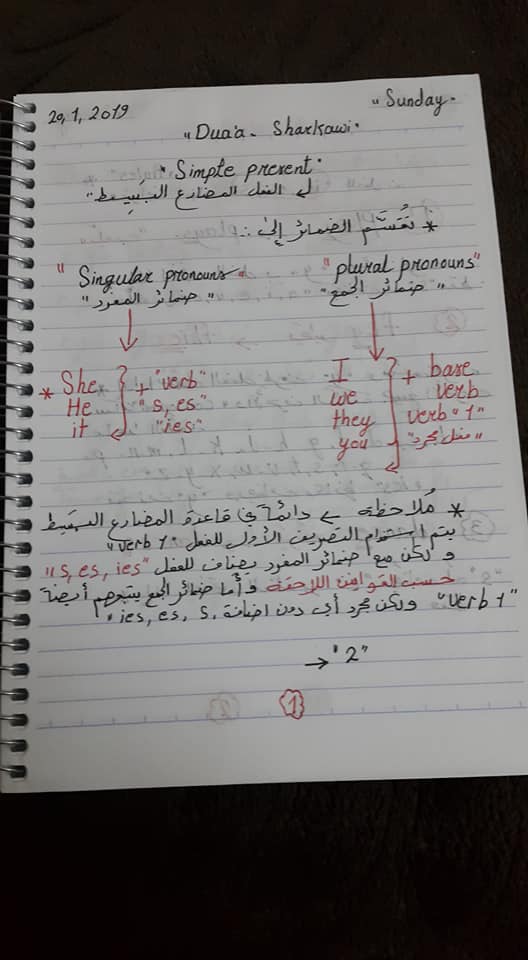 20, 1, 2019
"Sunday"
"Dua'a - Sharkawi"
"Simple present"
لـ الفعل المضارع البسيط
* تُقسَّم الضمائر إلى :
"Singular pronouns"
"ضمائر المفرد"
"plural pronouns"
"ضمائر الجمع"
* She
He
it
+ "verb"
"s, es"
"ies"
I
we
they
you
+ base
verb
verb "1"
"فعل مجرد"
* مُلاحظة دائماً في قاعدة المضارع البسيط
يتم استخدام التصريف الأول للفعل "verb 1"
ولكن مع ضمائر المفرد يضاف للفعل "s, es, ies"
حسب القوانين اللاحقة وأما ضمائر الجمع يتبعهم أيضاً
"verb 1" ولكن مجرد أي دون اضافة "ies, es, s"
→ "2"
1